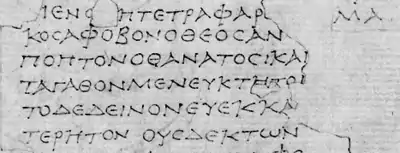 ΕΝΟ ΗΤΕΤΡΑΦΑΡ ΜΑ
ΚΟΣΑΦΟΒΟΝΟΘΕΟΣΑΝ
ΠΟΠΤΟΝΟΘΑΝΑΤΟΣΙΚΑΙ
ΤΑΓΑΘΟΝΜΕΝΕΥΚΤΗΤΟΙ
ΤΟΔΕΔΕΙΝΟΝΕΥΕΚΚΑ
ΤΕΡΗΤΟΝ ΟΥΣΔΕΚΤΩΝ